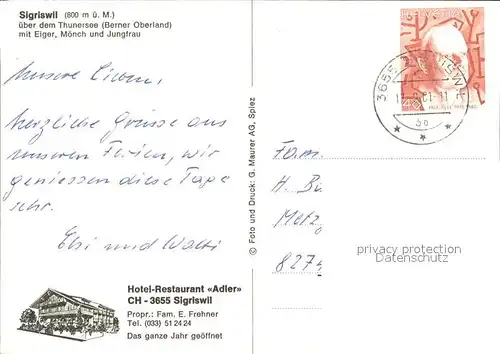 Sigriswil (800 m ü. M.)
über dem Thunersee (Berner Oberland)
mit Eiger, Mönch und Jungfrau
Unsere Lieben,
Herzliche Grüsse aus
unseren Ferien, wir
geniessen diese Tage
sehr.
Elsi und Walti
Hotel-Restaurant «Adler»
CH - 3655 Sigriswil
Propr.: Fam. E. Frehner
Tel. (033) 51 24 24
Das ganze Jahr geöffnet
© Foto und Druck: G. Maurer AG, Spiez
3655
Fam.
H. Bi
Metz
827
privacy protection
watermark